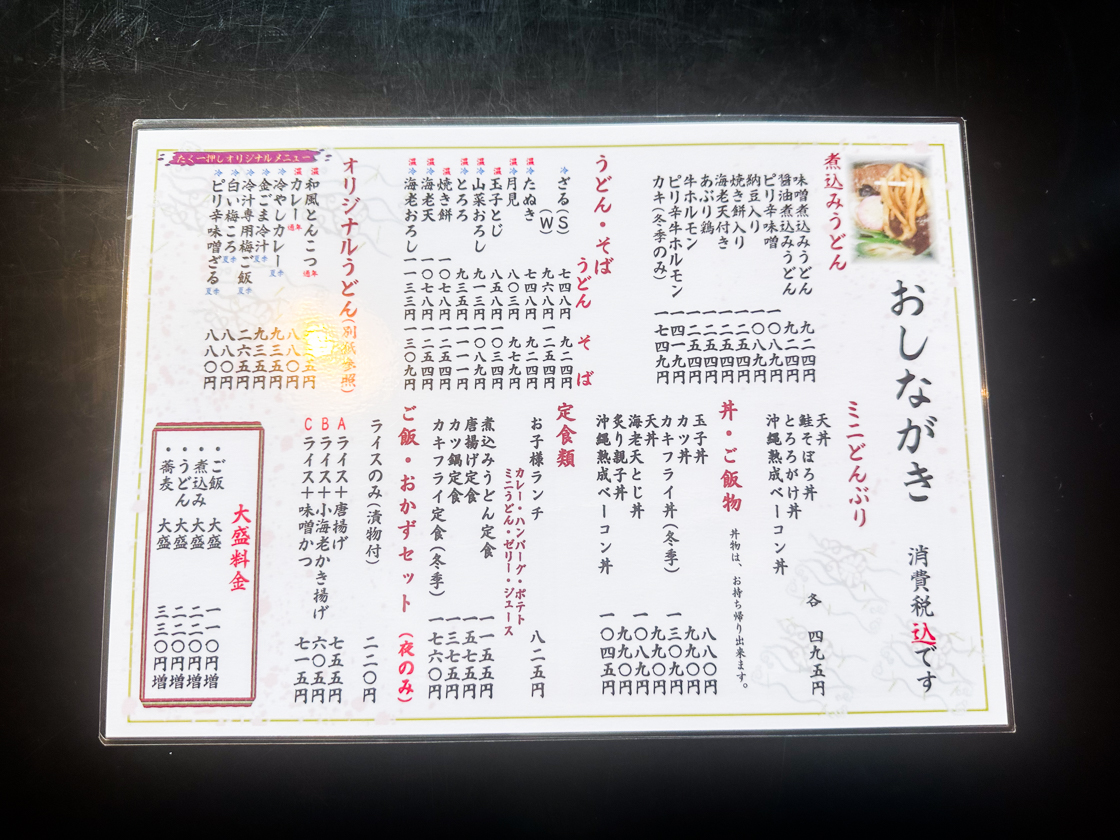 おしながき
消費税込です
煮込みうどん
味噌煮込みうどん 九二四円
醤油煮込みうどん 九二四円
ピリ辛味噌 一〇八九円
納豆入り 一〇八九円
焼き餅入り 一二五四円
海老天付き 一二五四円
あぶり鶏 一二五四円
牛ホルモン 一二五四円
ピリ辛牛ホルモン 一四一九円
カキ(冬季のみ) 一七四九円
うどん・そば
うどん そば
冷 ざる(S) 七四八円 九二四円
(W) 九六八円 一二五四円
温冷 たぬき 七四八円 九二四円
温冷 月見 八〇三円 九七九円
温 玉子とじ 八五八円 一〇三四円
温冷 山菜おろし 九一三円 一〇八九円
温冷 とろろ 九三五円 一一一一円
温 焼き餅 一〇七八円 一二五四円
温冷 海老天 一〇七八円 一二五四円
温冷 海老おろし 一一三三円 一三〇九円
オリジナルうどん(別紙参照)
たく一押しオリジナルメニュー
温 和風とんこつ 通年
温 カレー 通年
冷 冷やしカレー 夏季 九三五円
冷 金ごま冷汁 夏季 九三五円
冷汁専用梅ご飯 夏季
冷 白い梅ころ 夏季 八八〇円
冷 ピリ辛味噌ざる 夏季 八八〇円
ミニどんぶり
天丼
鮭そぼろ丼
とろろがけ丼
沖縄熟成ベーコン丼
各 四九五円
丼・ご飯物
丼物は、お持ち帰り出来ます。
玉子丼 八八〇円
カツ丼 九九〇円
カキフライ丼(冬季) 一三〇九円
天丼 九九〇円
海老天とじ丼 一〇八九円
炙り親子丼 九九〇円
沖縄熟成ベーコン丼 一〇四五円
定食類
お子様ランチ 八二五円
カレー・ハンバーグ・ポテト
ミニうどん・ゼリー・ジュース
煮込みうどん定食 一一五五円
唐揚げ定食
カツ鍋定食 一三七五円
カキフライ定食(冬季) 一七六〇円
ご飯・おかずセット(夜のみ)
ライスのみ(漬物付) 二二〇円
A ライス+唐揚げ
B ライス+小海老かき揚げ 六〇五円
C ライス+味噌かつ 七一五円
大盛料金
・ご飯 大盛 一一〇円増
・煮込み 大盛 二二〇円増
・うどん 大盛 二二〇円増
・蕎麦 大盛 三三〇円増